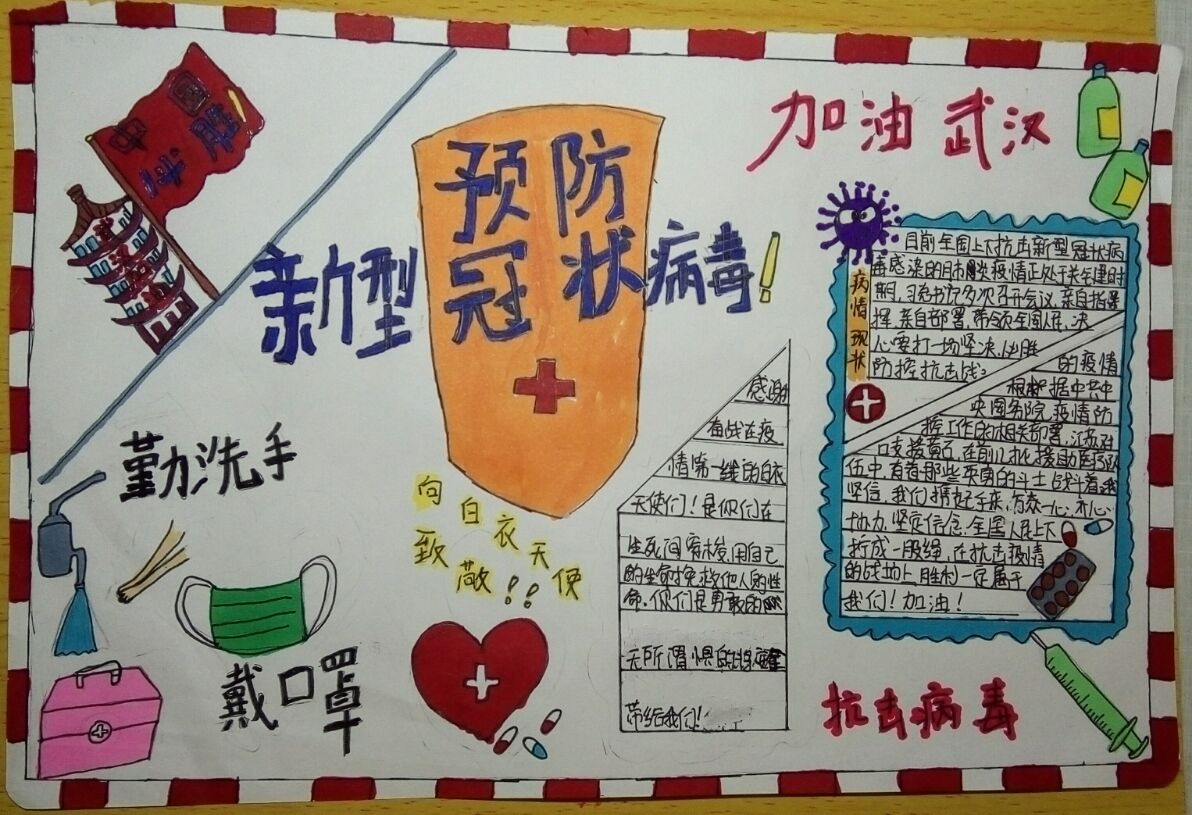 中国
必胜
预防
新型冠状病毒!
加油武汉
勤洗手
戴口罩
向白衣天使
致敬!!
感谢
奋战在疫
情第一线的白衣
天使们!是你们在
生死间穿梭,用自己
的生命拯救他人的性
命.你们是勇敢的
无所谓惧的
带给我们!
病情现状
目前全国上下抗击新型冠状病
毒感染的肺炎疫情正处于关键时
期,习总书记多次召开会议,亲自指挥
挥,亲自部署,带领全国人民,决
心要打一场坚决,必胜
的疫情
防控抗击战。
根据中共中
央国务院疫情防
控工作的相关部署,江苏对
口支援黄石,在前几批援助医疗队
伍中,有着那些英勇的斗士战斗着我
坚信,我们携起手来,万众一心,齐心
协力,坚定信念,全国人民上下
拧成一股绳,在抗击疫情
的战场上,胜利一定属于
我们!加油!
抗击病毒